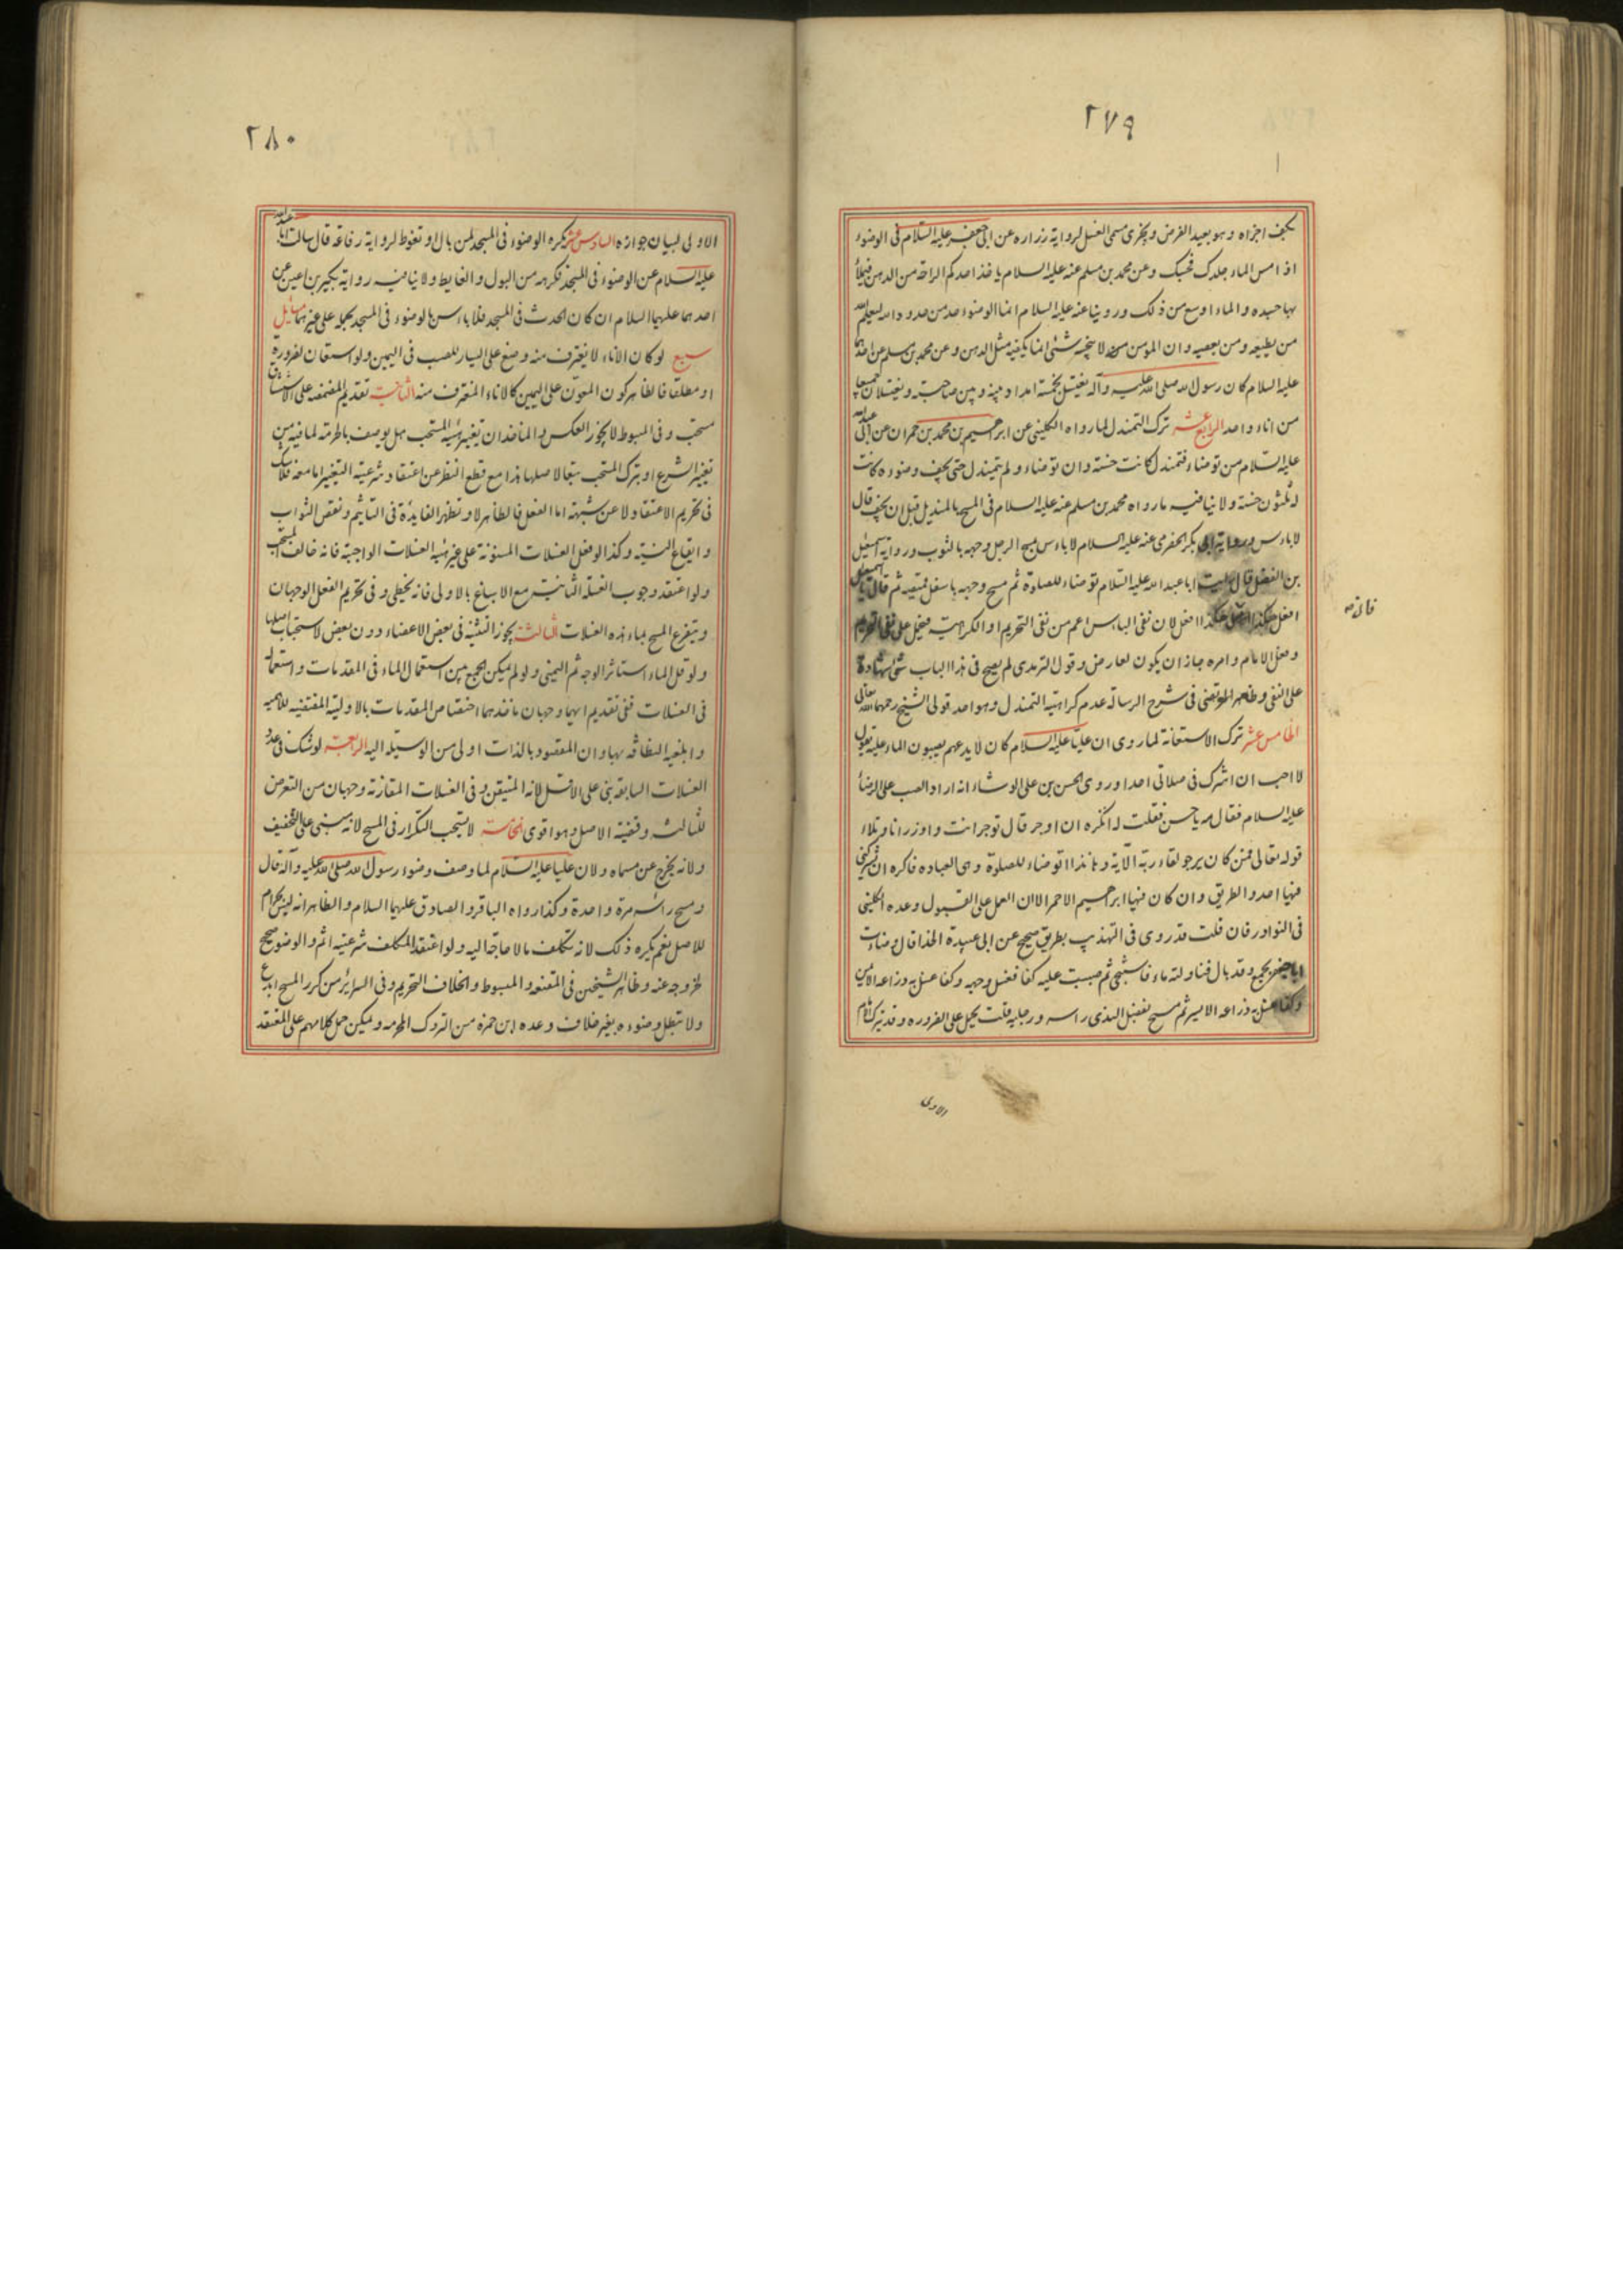 ٢٧٩
بكف اجزاه وهو بعيد الغرض ويجزى مسمى الغسل لرواية زراره عن ابى جعفر عليه السلام فى الوضوء
اذا مس الماء جلدك فحسبك وعن محمد بن مسلم عنه عليه السلام ياخذ احدكم الراحة من الدهن فيملأ
بها جسده والماء اوسع من ذلك وروينا عنه عليه السلام انما الوضوء حد من حدود الله ليعلم الله
من يطيعه ومن يعصيه وان المؤمن لا ينجسه شئ انما يكفيه مثل الدهن وعن محمد بن مسلم عن احدهما
عليه السلام كان رسول الله صلى الله عليه وآله يغتسل بخمسة امداد بينه وبين صاحبته ويغتسلان جميعا
من اناء واحد الرابع عشر ترك التمندل لما رواه الكلينى عن ابرهيم بن محمد بن حمران عن ابى عبد الله
عليه السلام من توضاء فتمندل كانت حسنة وان توضاء ولم يتمندل حتى يجف وضوءه كانت
له ثلثون حسنة ولا ينافيه ما رواه محمد بن مسلم عنه عليه السلام فى المسح بالمنديل قبل ان يجف قال
لا باءس ورواية ابى بكر الحضرمى عنه عليه السلام لا باءس بمسح الرجل وجهه بالثوب ورواية اسمعيل
بن الفضل قال رايت ابا عبد الله عليه السلام توضاء للصلوة ثم مسح وجهه باسفل قميصه ثم قال يا اسمعيل
افعل هكذا فانى هكذا افعل لان نفى الباس اعم من نفى التحريم او الكراهية فيحمل على نفى التحريم
فانه
وفعل الامام وامره جاز ان يكون لعارض وقول الترمدى لم يصح فى هذا الباب شئ شهادة
على النفى وظاهر المرتضى فى شرح الرسالة عدم كراهية التمندل وهو احد قولى الشيخ رحمهما الله تعالى
الخامس عشر ترك الاستعانة لما روى ان عليا عليه السلام كان لا يدعهم يصبون الماء عليه يقول
لا احب ان اشرك فى صلاتى احدا وروى الحسن بن على الوشاء انه اراد الصب على الرضا
عليه السلام فقال مه يا حسن فقلت له اتكره ان اوجر قال توجر انت واوزر انا وتلاء
قوله تعالى فمن كان يرجو لقاء ربه الآية وها نذا اتوضاء للصلوة وهى العباده فاكره ان يشركنى
فيها احد والطريق وان كان فيها ابرهيم الاحمر الا ان العمل على القبول وعده الكلينى
فى النوادر فان قلت قد روى فى التهذيب بطريق صحيح عن ابى عبيدة الحذا قال وضات
ابا جعفر بجمع وقد بال فناولته ماء فاستنجى ثم صببت عليه كفا فغسل وجهه وكفا غسل به ذراعه الايمن
وكفا غسل به ذراعه الايسر ثم مسح بفضل الندى راسه ورجليه قلت يحمل على الضروره وقد يترك الامام
الاولى
٢٨٠
الاولى لبيان جوازه السادس عشر يكره الوضوء فى المسجد لمن بال او تغوط لرواية رفاعة قال سالت ابا عبد الله
عليه السلام عن الوضوء فى المسجد فكرهه من البول والغايط ولا ينافيه رواية بكير بن اعين عن
احدهما عليهما السلام ان كان الحدث فى المسجد فلا باءس بالوضوء فى المسجد يحمله على غيرهما مسايل
سبع لو كان الاناء لا يغترف منه وضع على اليسار للصب فى اليمين ولو استعان لضرورة
او مطلقا فالظاهر كون المعون على اليمين كالاناء المغترف منه الثانية تقديم المضمضة على الاستنشاق
مستحب وفى المبسوط لا يجوز العكس والماخذ ان تغيير هيئة المستحب هل يوصف بالحرمة لما فيه من
تغيير الشرع او بترك المستحب تبعا لاصلها هذا مع قطع النظر عن اعتقاد شرعية التغيير اما معه فلا شك
فى تحريم الاعتقاد لا عن شبهة اما الفعل فالظاهر لا وتظهر الفايدة فى التاثيم ونقص الثواب
وايقاع النية وكذا لو فعل الغسلات المسنونة على غير هيئة الغسلات الواجبة فانه خالف المستحب
ولو اعتقد وجوب الغسلة الثانية مع الاسباغ بالاولى فانه يخطى وفى تحريم الفعل الوجهان
ويتفرع المسح بماء هذه الغسلات الثالثة يجوز التثنية فى بعض الاعضاء دون بعض لاستحباب اصلها
ولو قل الماء استاثر الوجه ثم اليمنى ولو لم يمكن الجمع بين استعمال الماء فى المقدمات واستعماله
فى الغسلات ففى تقديم ايهما وجهان ماخذهما اختصاص المقدمات بالاولية المقتضيه للاهميه
وابلغية النظافه بها وان المقصود بالذات اولى من الوسيلة اليه الرابعة لو شك فى عدد
الغسلات السابقة بنى على الاقل لانه المتيقن وفى الغسلات المقارنة وجهان من التعرض
للثالثه وقضية الاصل وهو اقوى الخامسة لا يستحب التكرار فى المسح لانه مبنى على التخفيف
ولانه يخرج عن مسماه ولان عليا عليه السلام لما وصف وضوء رسول الله صلى الله عليه وآله قال
ومسح راسه مرة واحدة وكذا رواه الباقر والصادق عليهما السلام والظاهر انه ليس بحرام
للاصل نعم يكره ذلك لانه تكلف ما لا حاجة اليه ولو اعتقد المكلف شرعيته اثم والوضو صحيح
لخروجه عنه وظاهر الشيخين فى المقنعه والمبسوط والخلاف التحريم وفى السرائر من كرر المسح ابدع
ولا تبطل وضوءه بغير خلاف وعده ابن حمزه من التروك المحرمه ويمكن حمل كلامهم على المعتقد